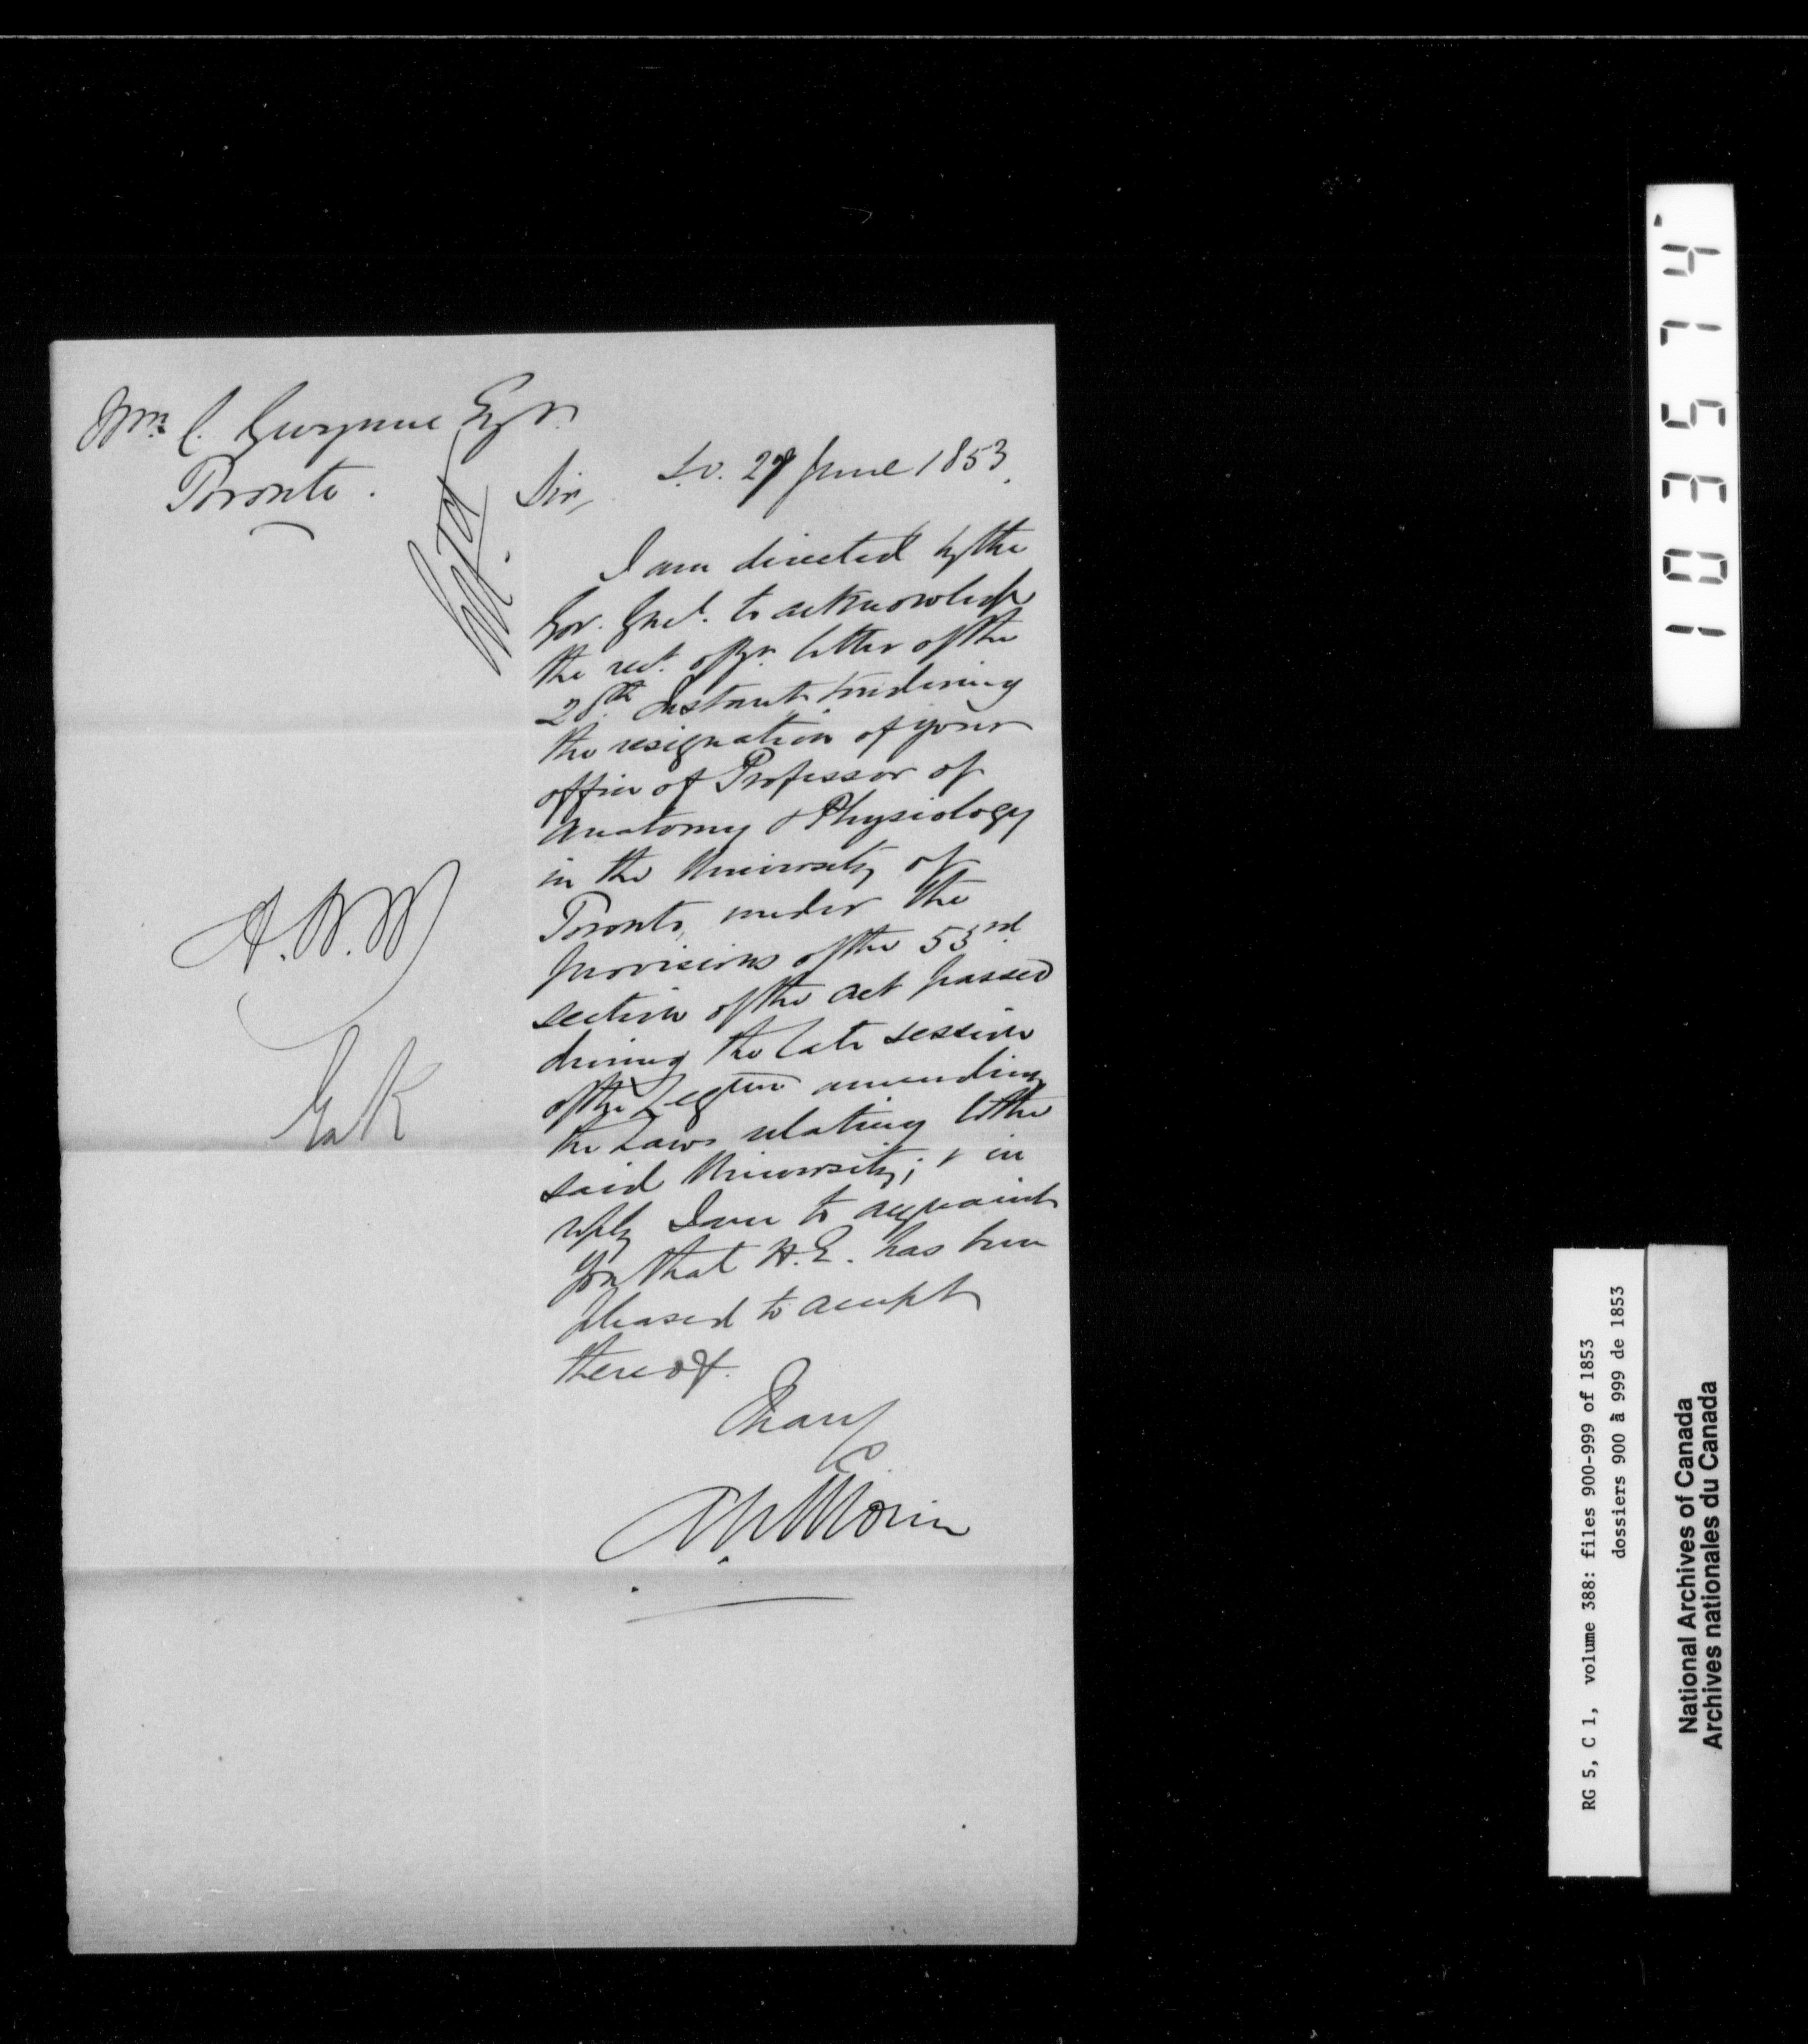 Wm. C. Gwynne Esqr.
Toronto.
S.O. 29 June 1853.
Sir,
I am directed by the
Gov. Genl. to acknowledge
the rect. of yr. letter of the
28th. Instant tendering
the resignation of your
office of Professor of
Anatomy & Physiology
in the University of
Toronto, under the
provisions of the 53rd
section of the Act passed
during the late session
of the Legture amending
the Laws relating to the
said University; & in
reply I am to acquaint
you that H.E. has been
pleased to accept
thereof.
I have
&c
A N Morin
103574
RG 5, C 1, volume 388: files 900-999 of 1853
dossiers 900 à 999 de 1853
National Archives of Canada
Archives nationales du Canada